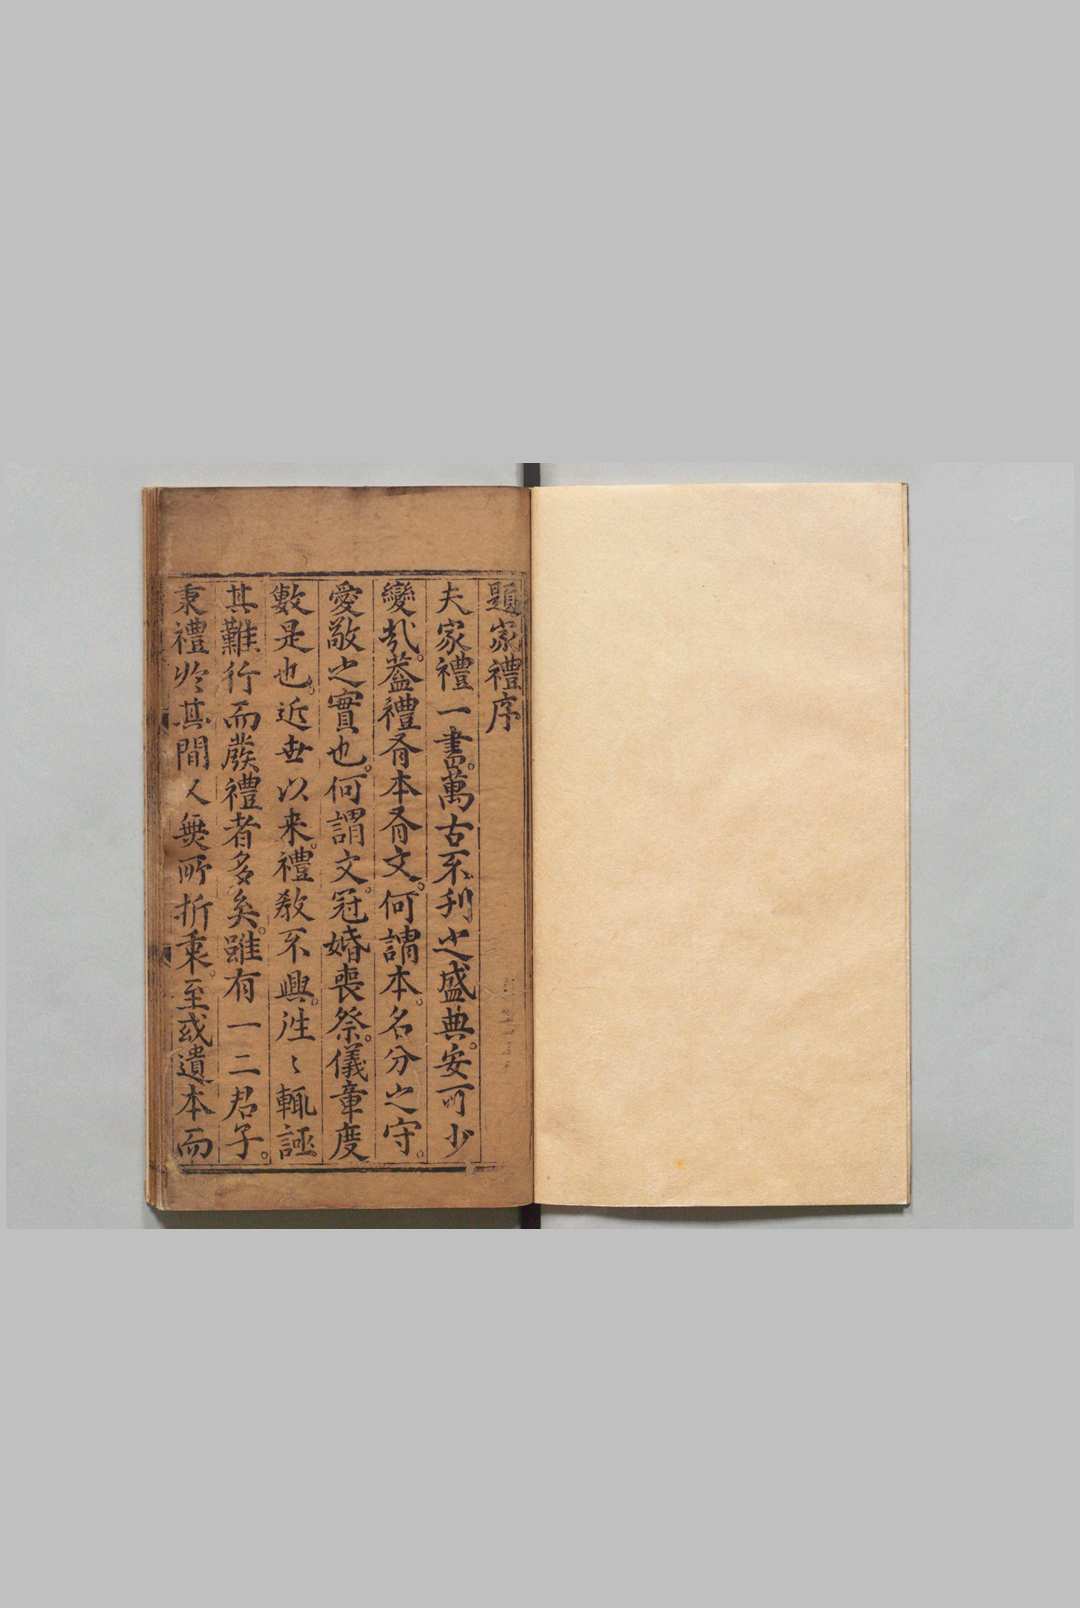 題家禮序
夫家禮一書。萬古不刊之盛典。安可少
變㢤。葢禮有本有文。何謂本。名分之守。
愛敬之實也。何謂文。冠婚喪祭。儀章度
數是也。近世以来。禮教不興。徃〻輒誣
其難行而廢禮者多矣。雖有一二君子。
秉禮於其間。人無所折衷。至或遺本而